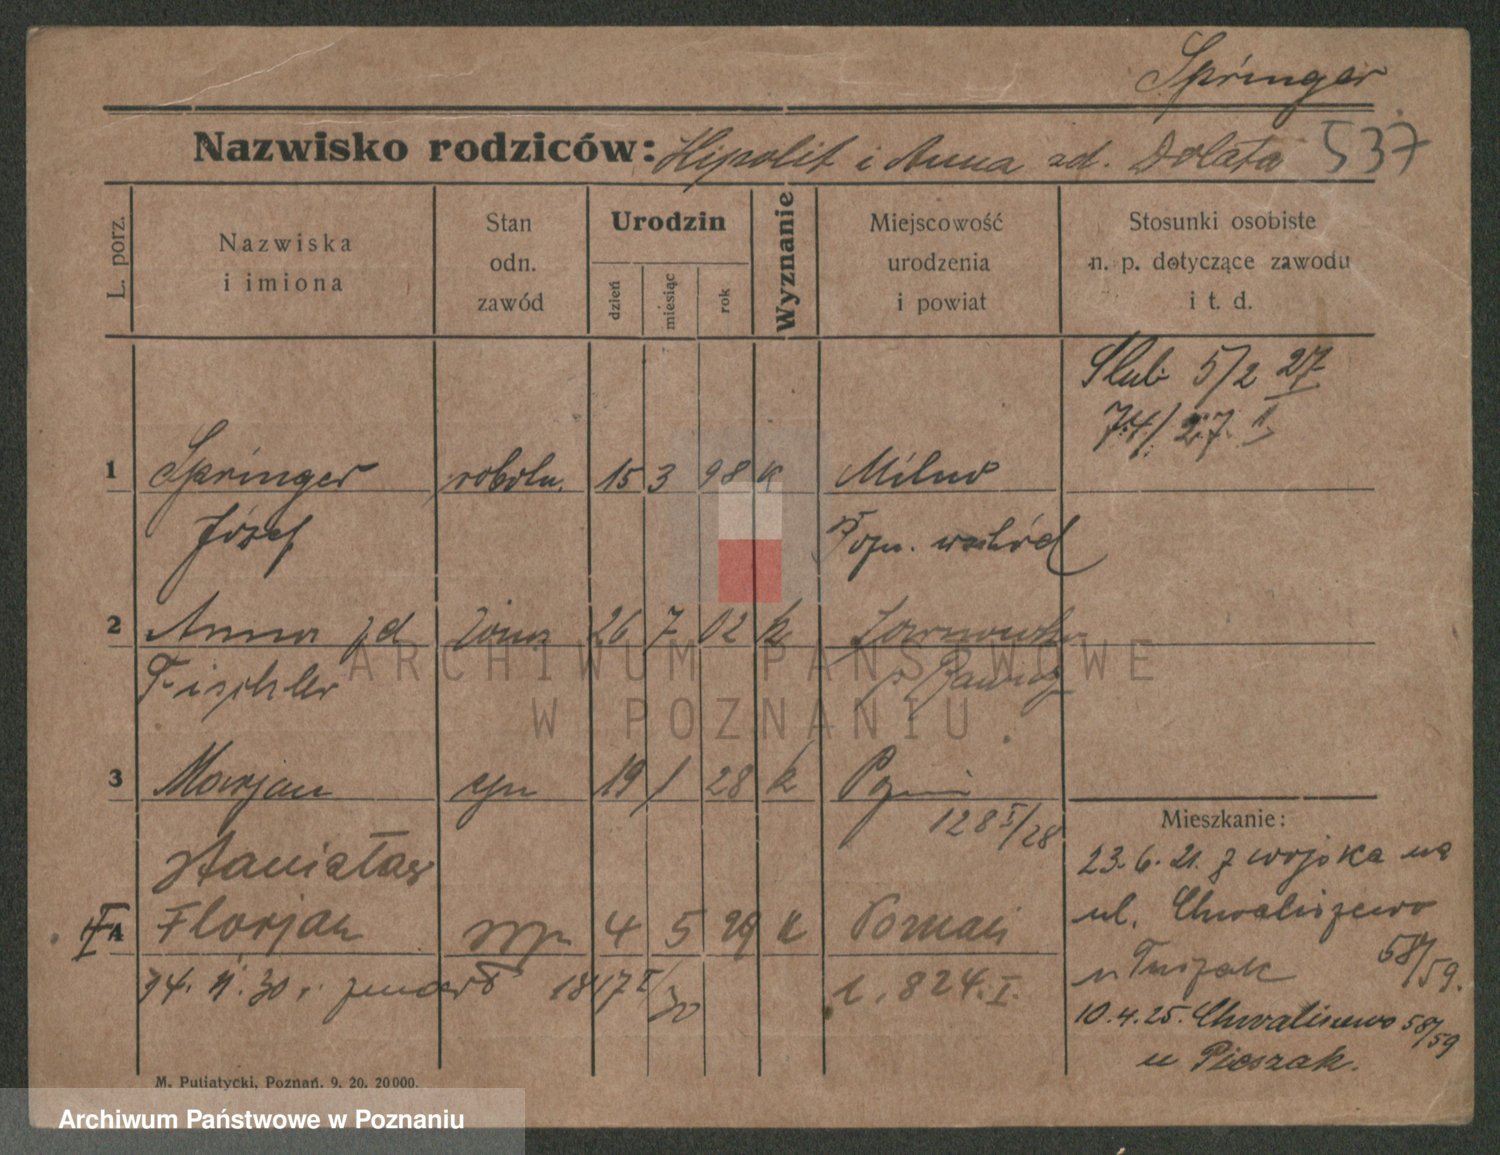 Springer
Nazwisko rodziców: Hipolit i Anna zd. Dolata 537
L. porz.
Nazwiska
i imiona
Stan
odn.
zawód
Urodzin
dzień
miesiąc
rok
Wyznanie
Miejscowość
urodzenia
i powiat
Stosunki osobiste
n. p. dotyczące zawodu
i t. d.
Ślub 5/2 27
74/27 I
1 Springer robotn. 15 3 98 k
Józef Pozn. wschód
2 Anna zd żona 26 7 02 k
Fischler
3 Marjan syn 19 1 28 k
128 I/28
Stanisław
Florjan syn 4 5 29 k Poznań
4
24. 11. 30 r. 1817 I/30 1. 824. I.
Mieszkanie:
23. 6. 21. z wojska na
ul. Chwaliszewo
58/59.
u
10. 4. 25. Chwaliszewo 58/59
u Pieszak.
M. Putiatycki, Poznań. 9. 20. 20000.
ARCHIWUM PAŃSTWOWE
W POZNANIU
Archiwum Państwowe w Poznaniu